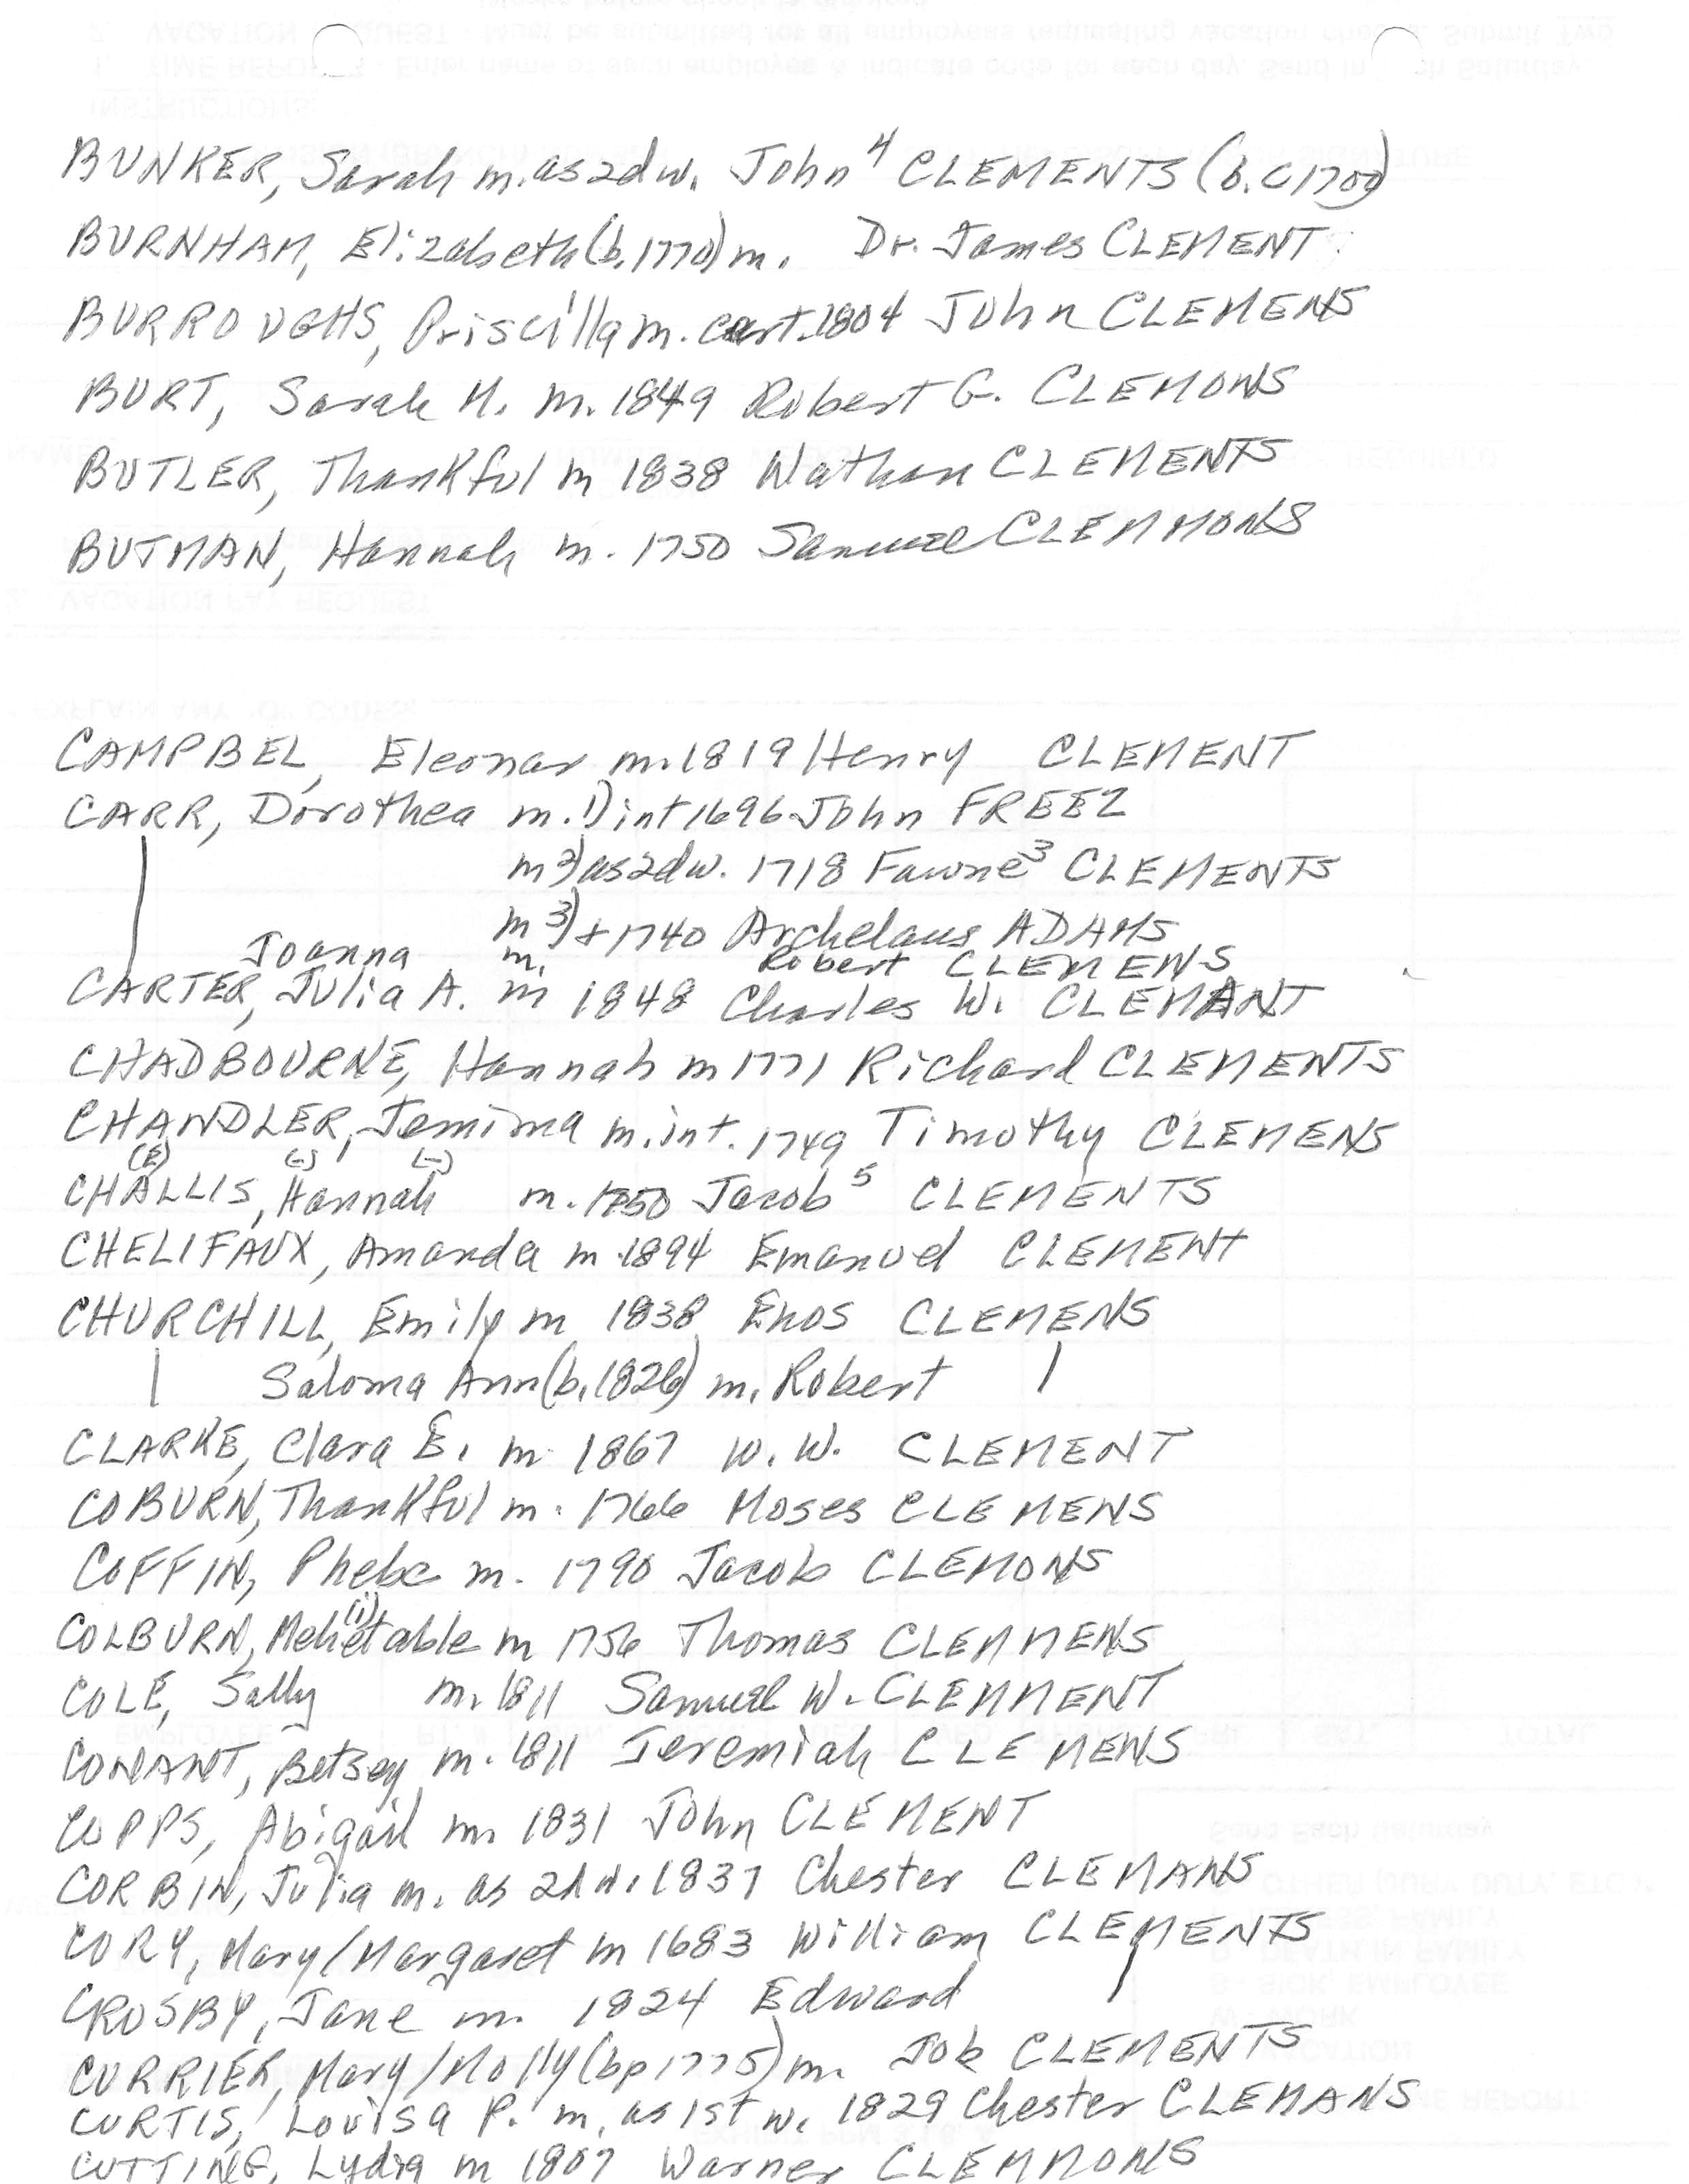 BUNKER, Sarah m. as 2d w. John⁴ CLEMENTS (b. c1700)
BURNHAM, Elizabeth (b. 1770) m. Dr. James CLEMENT
BURROUGHS, Priscilla m. cert. 1804 John CLEMENS
BURT, Sarah M. m. 1849 Robert G. CLEMONS
BUTLER, Thankful m 1838 Nathan CLEMENTS
BUTMAN, Hannah m. 1750 Samuel CLEMMONS
CAMPBEL, Eleonar m. 1819 Henry CLEMENT
CARR, Dorothea m. 1) int 1696 John FREEZ
m 2) as 2d w. 1718 Fawne³ CLEMENTS
m 3) + 1740 Archelaus ADAMS
Joanna m. Robert CLEMENS
CARTER, Julia A. m 1848 Charles W. CLEMANT
CHADBOURNE, Hannah m 1771 Richard CLEMENTS
CHANDLER, Jemima m. int. 1749 Timothy CLEMENS
(E) (-) (-)
CHALLIS, Hannah m. 1750 Jacob⁵ CLEMENTS
CHELIFAUX, Amanda m. 1894 Emanuel CLEMENT
CHURCHILL, Emily m 1838 Enos CLEMENS
| Saloma Ann (b. 1826) m. Robert |
CLARKE, Clara E. m 1867 W. W. CLEMENT
COBURN, Thankful m. 1766 Moses CLEMENS
COFFIN, Phebe m. 1790 Jacob CLEMONS
(i)
COLBURN, Mehetable m 1756 Thomas CLEMMENS
COLE, Sally m. 1811 Samuel W. CLEMMENT
CONANT, Betsey m. 1811 Jeremiah CLEMENS
COPPS, Abigail m. 1831 John CLEMENT
CORBIN, Julia m. as 2d w. 1837 Chester CLEMANS
CORY, Mary/Margaret m 1683 William CLEMENTS
CROSBY, Jane m. 1824 Edward |
CURRIER, Mary/Molly (bp 1775) m. Job CLEMENTS
CURTIS, Louisa P. m. as 1st w. 1829 Chester CLEMANS
CUTTING, Lydia m 1807 Warner CLEMMONS